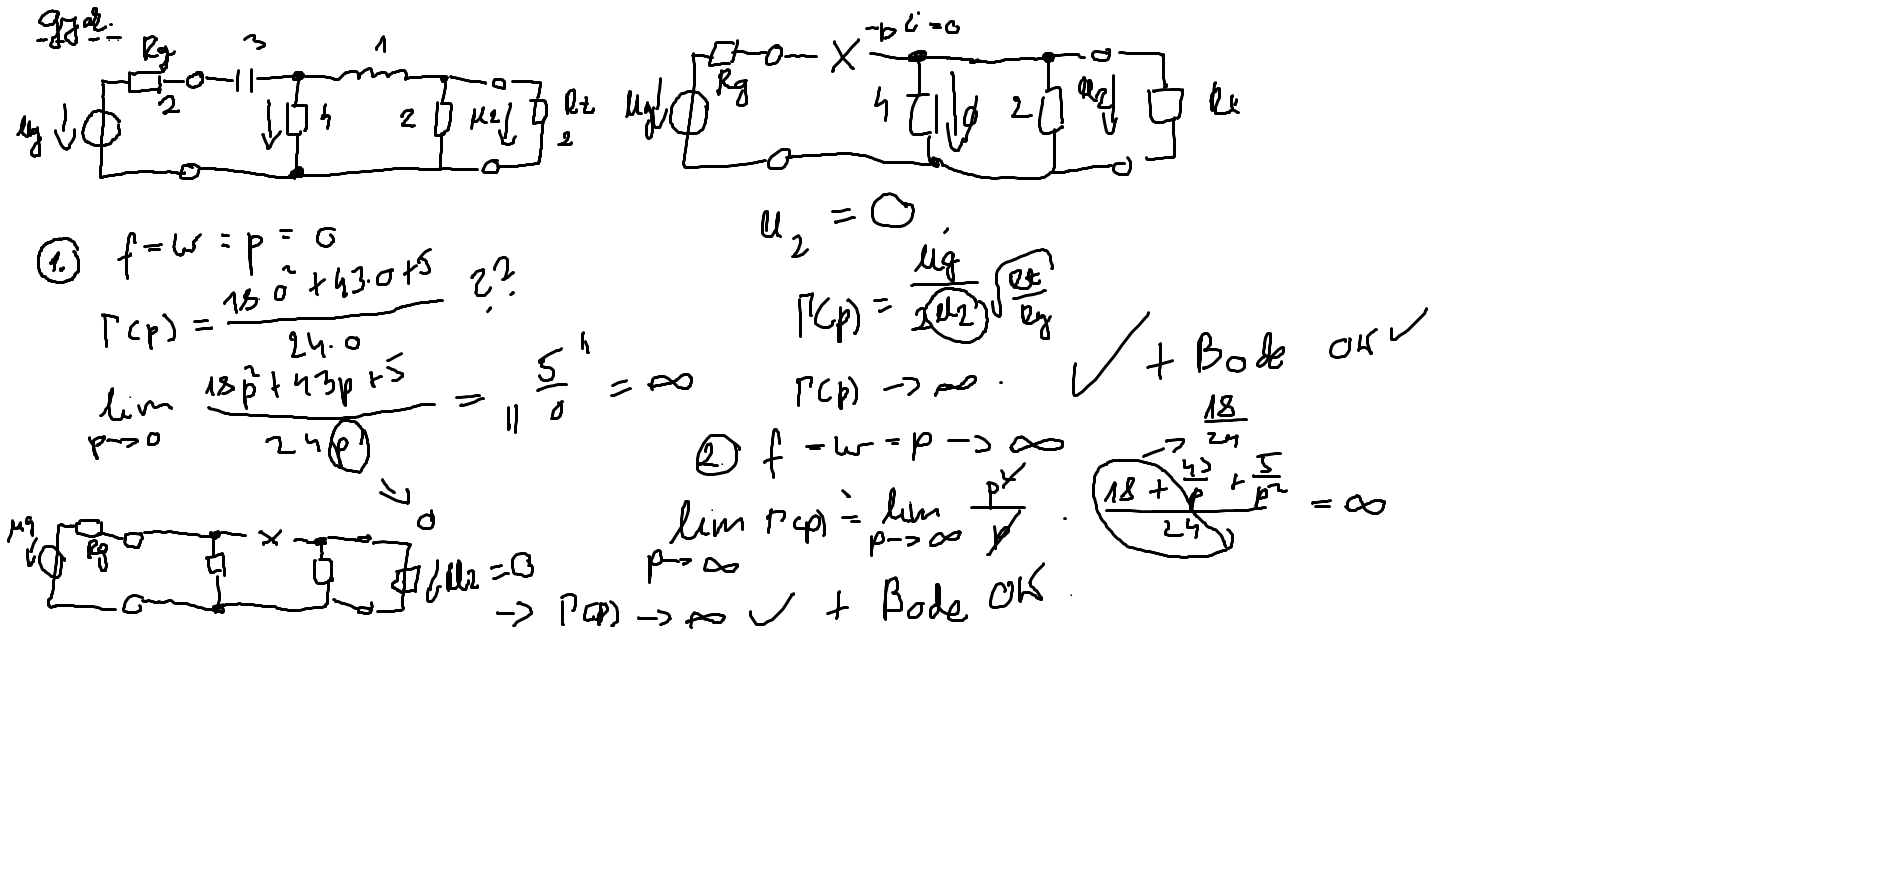 Gyak.
Rg 3 1
2
Ug 4 2 U2 Rt 2
→ i = 0
Rg X
Ug 4 0 2 U2 Rt
U2 = 0
1. f = w = p = 0
Γ(p) = (18·0² + 43·0 + 5) / (24·0) ??
lim p→0 (18p² + 43p + 5) / (24p) = "5/0" = ∞
0
Γ(p) = Ug / (2U2) √(Rt/Rg)
Γ(p) → ∞. ✓ + Bode OK ✓
2. f = w = p → ∞
lim p→∞ Γ(p) = lim p→∞ p²/p · (18 + 43/p + 5/p²) / 24 = ∞
→ 18/24
Ug Rg X U2 = 0
→ Γ(p) → ∞ ✓ + Bode OK.